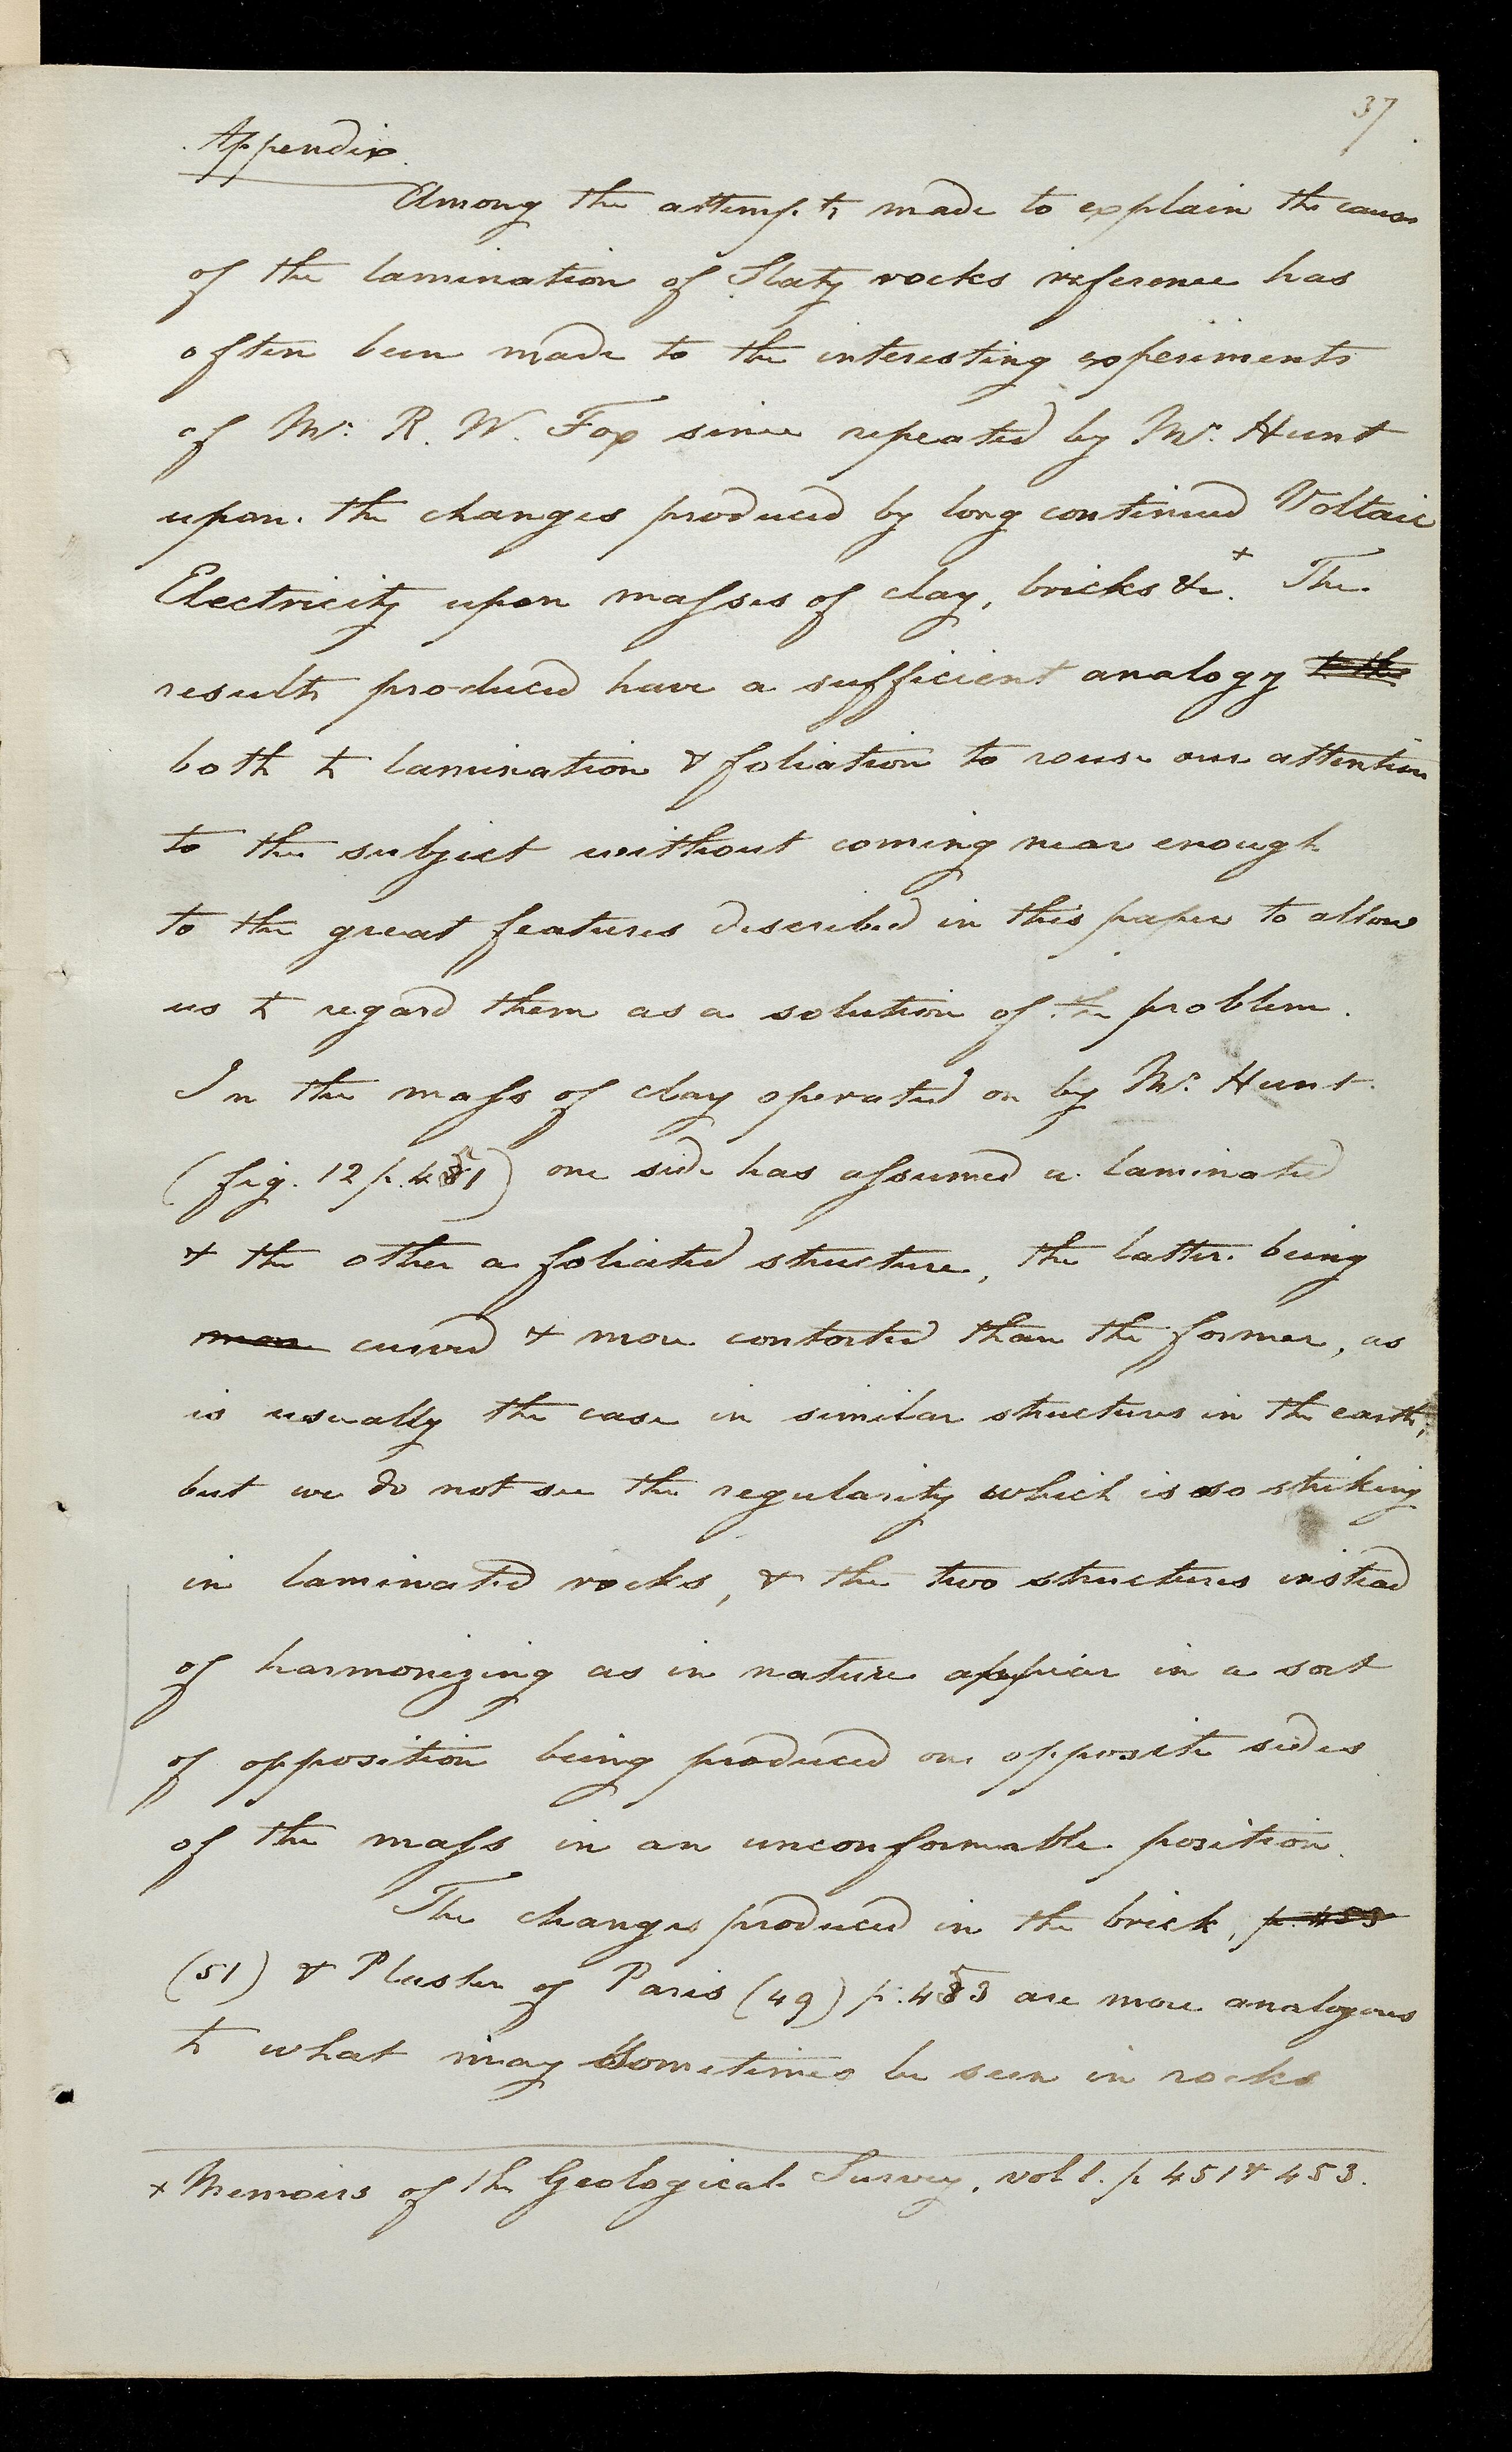 37
Appendix
Among the attempts made to explain the cause
of the lamination of Slaty rocks reference has
often been made to the interesting experiments
of Mr. R. W. Fox since repeated by Mr. Hunt
upon. the changes produced by long continued Voltaic
Electricity upon masses of clay, bricks &c.+ The
results produced have a sufficient analogy to the
both to lamination & foliation to rouse our attention
to the subject without coming near enough
to the great features described in this paper to allow
us to regard them as a solution of the problem.
In the mass of clay operated on by Mr. Hunt
(fig. 12 p. 451) one side has assumed a laminated
& the other a foliated structure, the latter being
more curved & more contorted than the former, as
is usually the case in similar structures in the earth;
but we do not see the regularity which is so striking
in laminated rocks, & the two structures instead
of harmonizing as in nature appear in a sort
of opposition being produced on opposite sides
of the mass in an unconformable position.
The changes produced in the brick, p. 453
(51) & Plaster of Paris (49) p. 453 are more analogous
to what may sometimes be seen in rocks
+ Memoirs of the Geological Survey, vol 1. p 451 & 453.